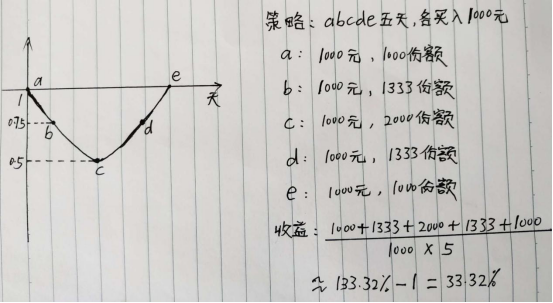 策略: abcde五天,各买入1000元
a: 1000元, 1000份额
b: 1000元, 1333份额
c: 1000元, 2000份额
d: 1000元, 1333份额
e: 1000元, 1000份额
收益: 1000+1333+2000+1333+1000
1000 × 5
≈ 133.32% - 1 = 33.32%
a
e
1
天
0.75
b
d
0.5
c